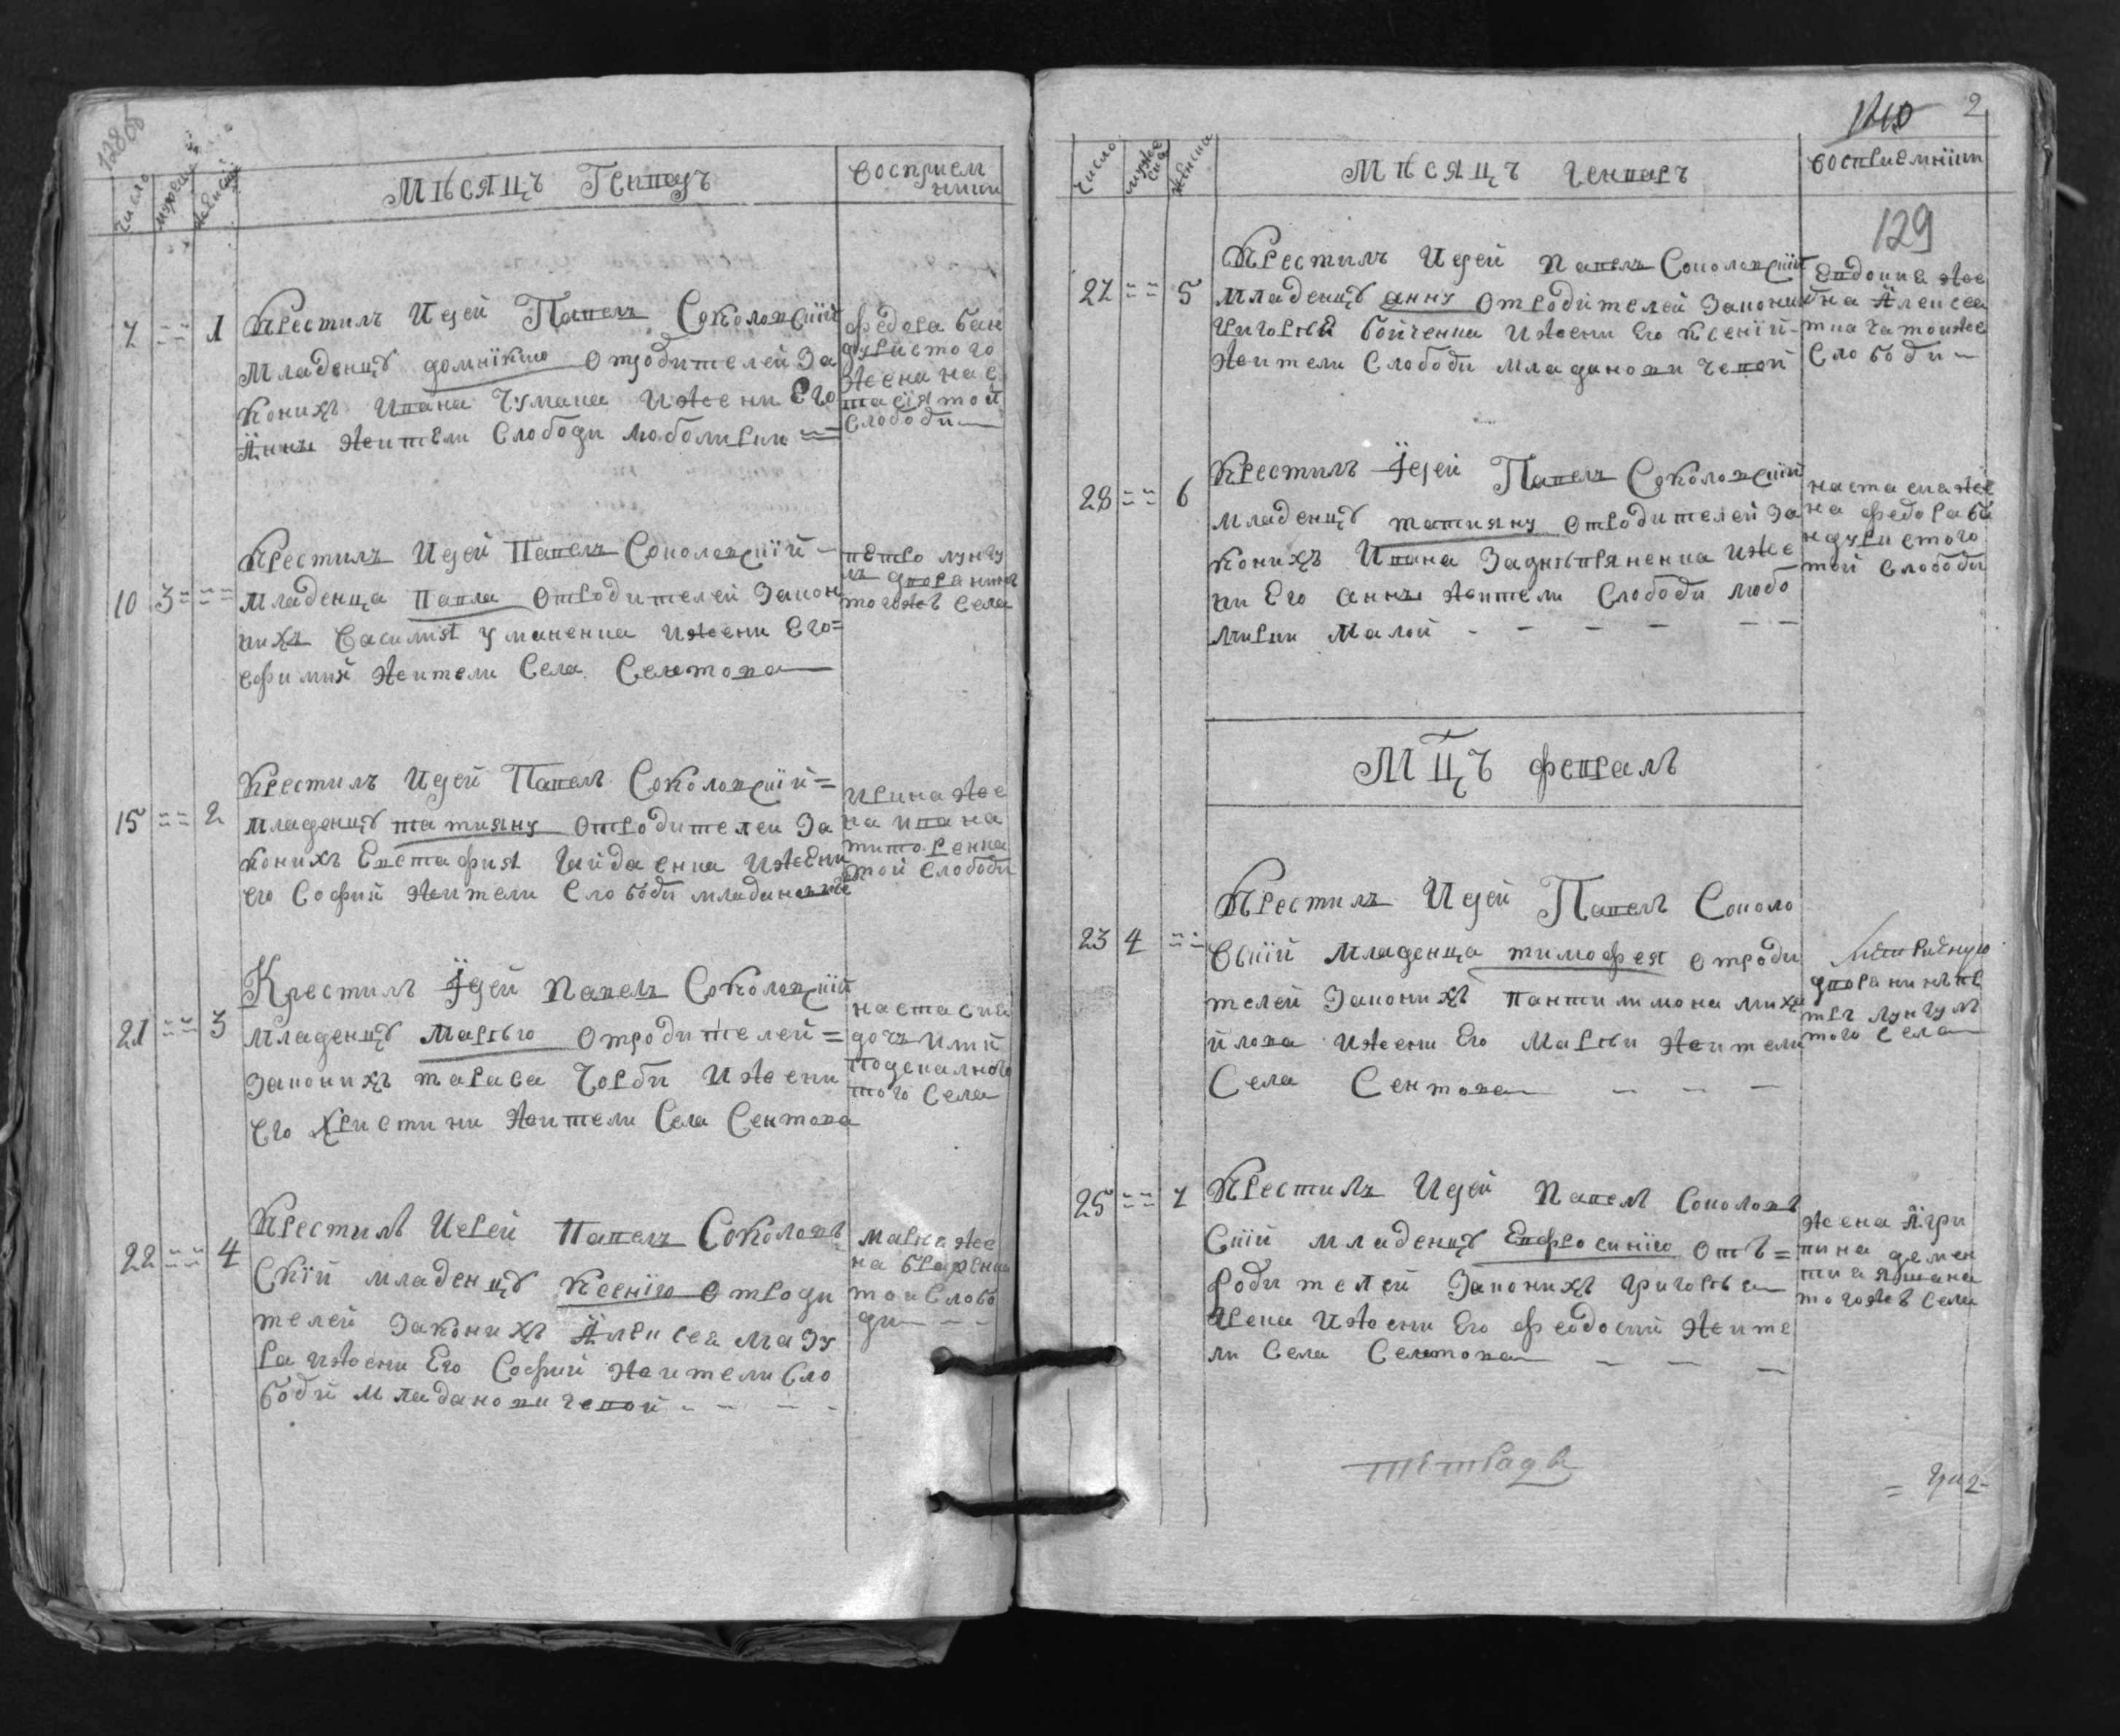 128об
число
мужеск
женски
Мѣсяцъ Генварь
восприем
ники
7 == 1
Крестилъ Иерей Павелъ Соколовский
Младенцѣ домнікию Отродителей За
конихъ Ивана Чумака Ижени Его
Анны Жители Слободи Люболирки =
федора бан
дуристого
жена нас
тасія той
слободи
10 3 ==
Крестилъ Иерей Павелъ Соколовскій -
Младенца Павла Отродителей Закон
нихъ Василия Уманенка Ижени Его =
ефимий Жители Села Сентова
петро лунгу
лъ дворанинъ
тогожъ села
15 == 2
Крестилъ Иерей Павелъ Соколовскій =
Младенцѣ татияну Отродителей За
конихъ Евстафия Гайдаенка Ижени
его Софий жители Слободи младанов
ирина же
на ивана
титоренка
той слободи
21 == 3
Крестилъ Іерей Павелъ Соколовскій
Младенцѣ Марью Отродителей =
Законихъ тараса Чорби Ижени
Его Христини Жители Села Сентова
настасия
дочь илий
того села
22 == 4
Крестилъ Иерей Павелъ Соколовъ
Скій младенцѣ Ксенію отроди
телей Законихъ Алексея мазу
ра ижени Его Софий жители Сло
боди младановичевой - - - -
мариа же
на
той слобо
ди - -
2
число
мужес
ка
женска
Мѣсяцъ Генварь
восприемники
129
27 == 5
Крестилъ Иерей Павелъ Соколовскій
Младенцѣ анну Отродителей Закони
Григорья бойченка Ижени Его Ксеній -
Жители Слободи младановичевой
Евдокиа же
на Алексеа
тка тоижъ
Слободи -
28 == 6
Крестилъ Іерей Павелъ Соколовский
младенцѣ татияну Отродителей За
конихъ Ивана Заднѣпряненка Иже
ни Его анны жители Слободи любо
мирки Малой - - - - - -
настасиа же
на федора ба
ндуристого
той слободи
МЦЪ февралъ
23 4 ==
Крестилъ Иерей Павелъ Соколо
вский Младенца тимофея отроди
телей Законихъ пантилимона миха
йлова ижени Его Марьи жители
Села Сентова - - -
дворанинъ пе
тръ лунгулъ
того села
25 == 7
Крестилъ Иерей Павелъ Соколовъ
Ский младенцѣ Евфросинію отъ =
родителей Законихъ григорья
Цепы Ижени Его феодосий Жите
ли Села Сентова - - -
жена Агри
пина демен
тиа
тогожъ села
тетрадь